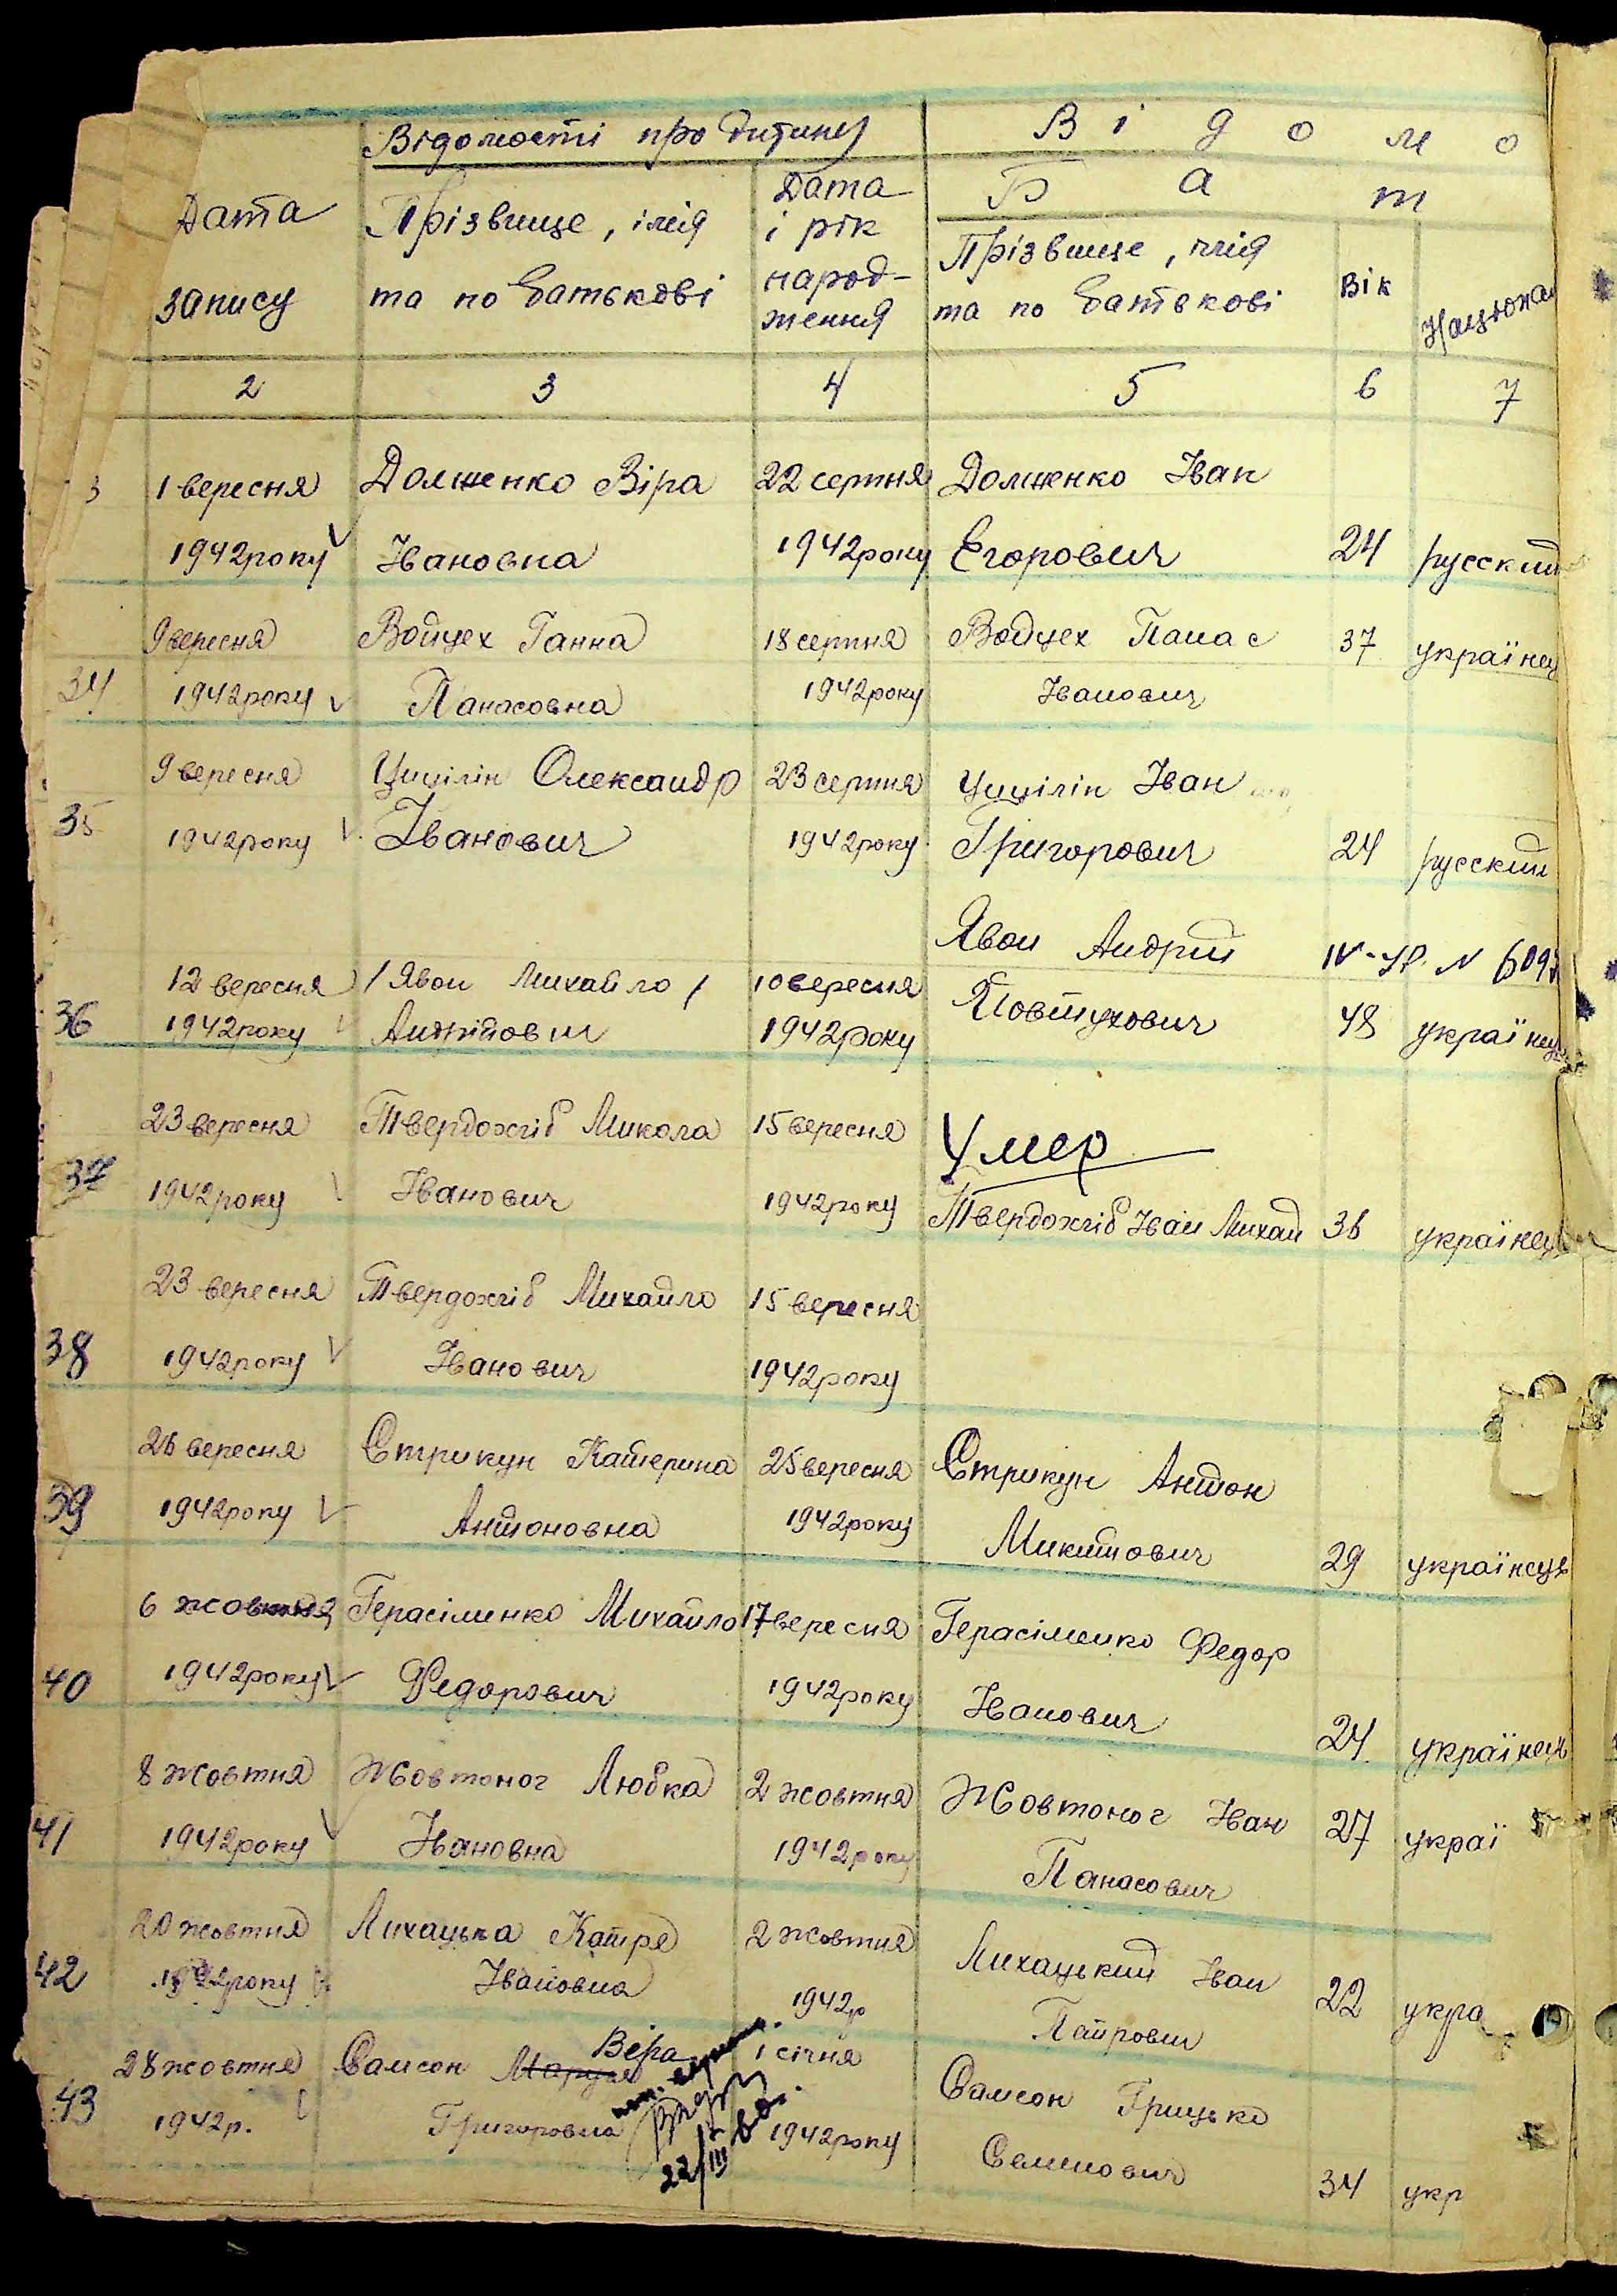 Відомості про дитину
В і д о м о
Б а т
Дата
запису
Прізвище, імія
та по батькові
Дата
і рік
народ-
ження
Прізвище, імія
та по батькові
Вік
Націона
2 3 4 5 6 7
3 1 вересня Долженко Віра 22 серпня Долженко Іван
1942 року Івановна 1942 року Єгорович 24 русский
9 вересня Войцех Ганна 18 серпня Войцех Панас 37 українец
34 1942 року Панасовна 1942 року Іванович
9 вересня Цицілін Олександр 23 серпня Цицілін Іван
35 1942 року Іванович 1942 року Григорович 24 русский
Явон Андрій IV-УР. N 609
12 вересня / Явон Михайло / 10 вересня
36 1942 року Андрійович 1942 року Йовтухович 48 українец
23 вересня Твердохліб Микола 15 вересня Умер
37 1942 року Іванович 1942 року Твердохліб Іван Михай 36 українец
23 вересня Твердохліб Михайло 15 вересня
38 1942 року Іванович 1942 року
26 вересня Стрикун Катерина 25 вересня Стрикун Антон
39 1942 року Антоновна 1942 року Микитович 29 українець
6 жовтня Герасіменко Михайло 17 вересня Герасіменко Федор
40 1942 року Федорович 1942 року Іванович 24 українець
8 жовтня Жовтоног Любка 2 жовтня Жовтоног Іван 27 украї
41 1942 року Івановна 1942 року Панасович
20 жовтня Лихацька Катря 2 жовтня Лихацький Іван 22 укра
42 1942 року Івановна 1942р Петрович
Віра
28 жовтня Самсон Маруся 1 січня Самсон Грицько
43 1942р. Григоровна 1942 року Семенович 34 укр
22/III